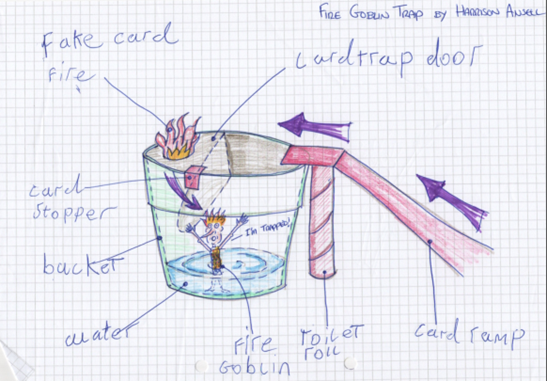 FIRE GOBLIN TRAP BY HARRISON ANSELL
fake card
fire
card trap door
card
stopper
I'M TRAPPED!
bucket
water
FIRE
GOBLIN
TOILET
ROLL
card ramp